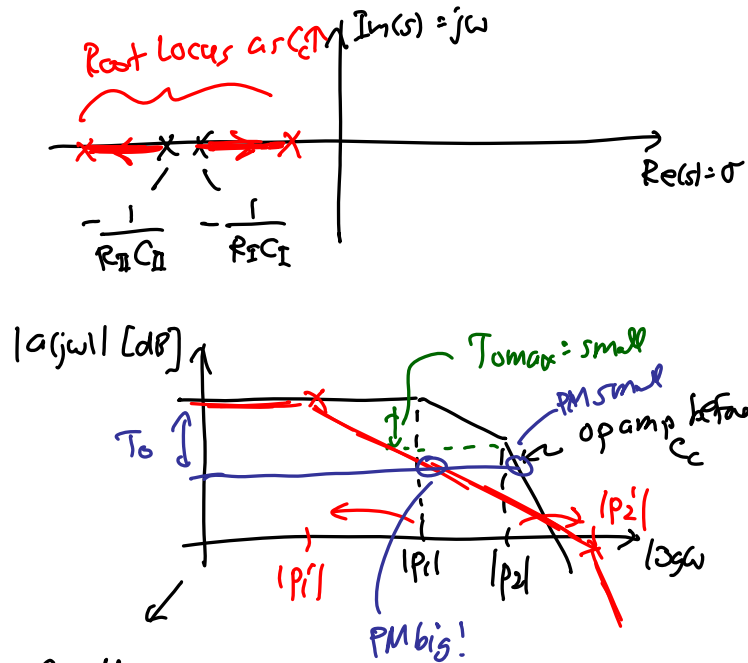 Root Locus as Cc↑
Im(s) = jω
Re(s) = σ
- 1/(R_II C_II)
- 1/(R_I C_I)
|a(jω)| [dB]
Tomax = small
PM small
op amp before Cc
To
|p2'|
|p1'|
|p1|
|p2|
logω
PM big!